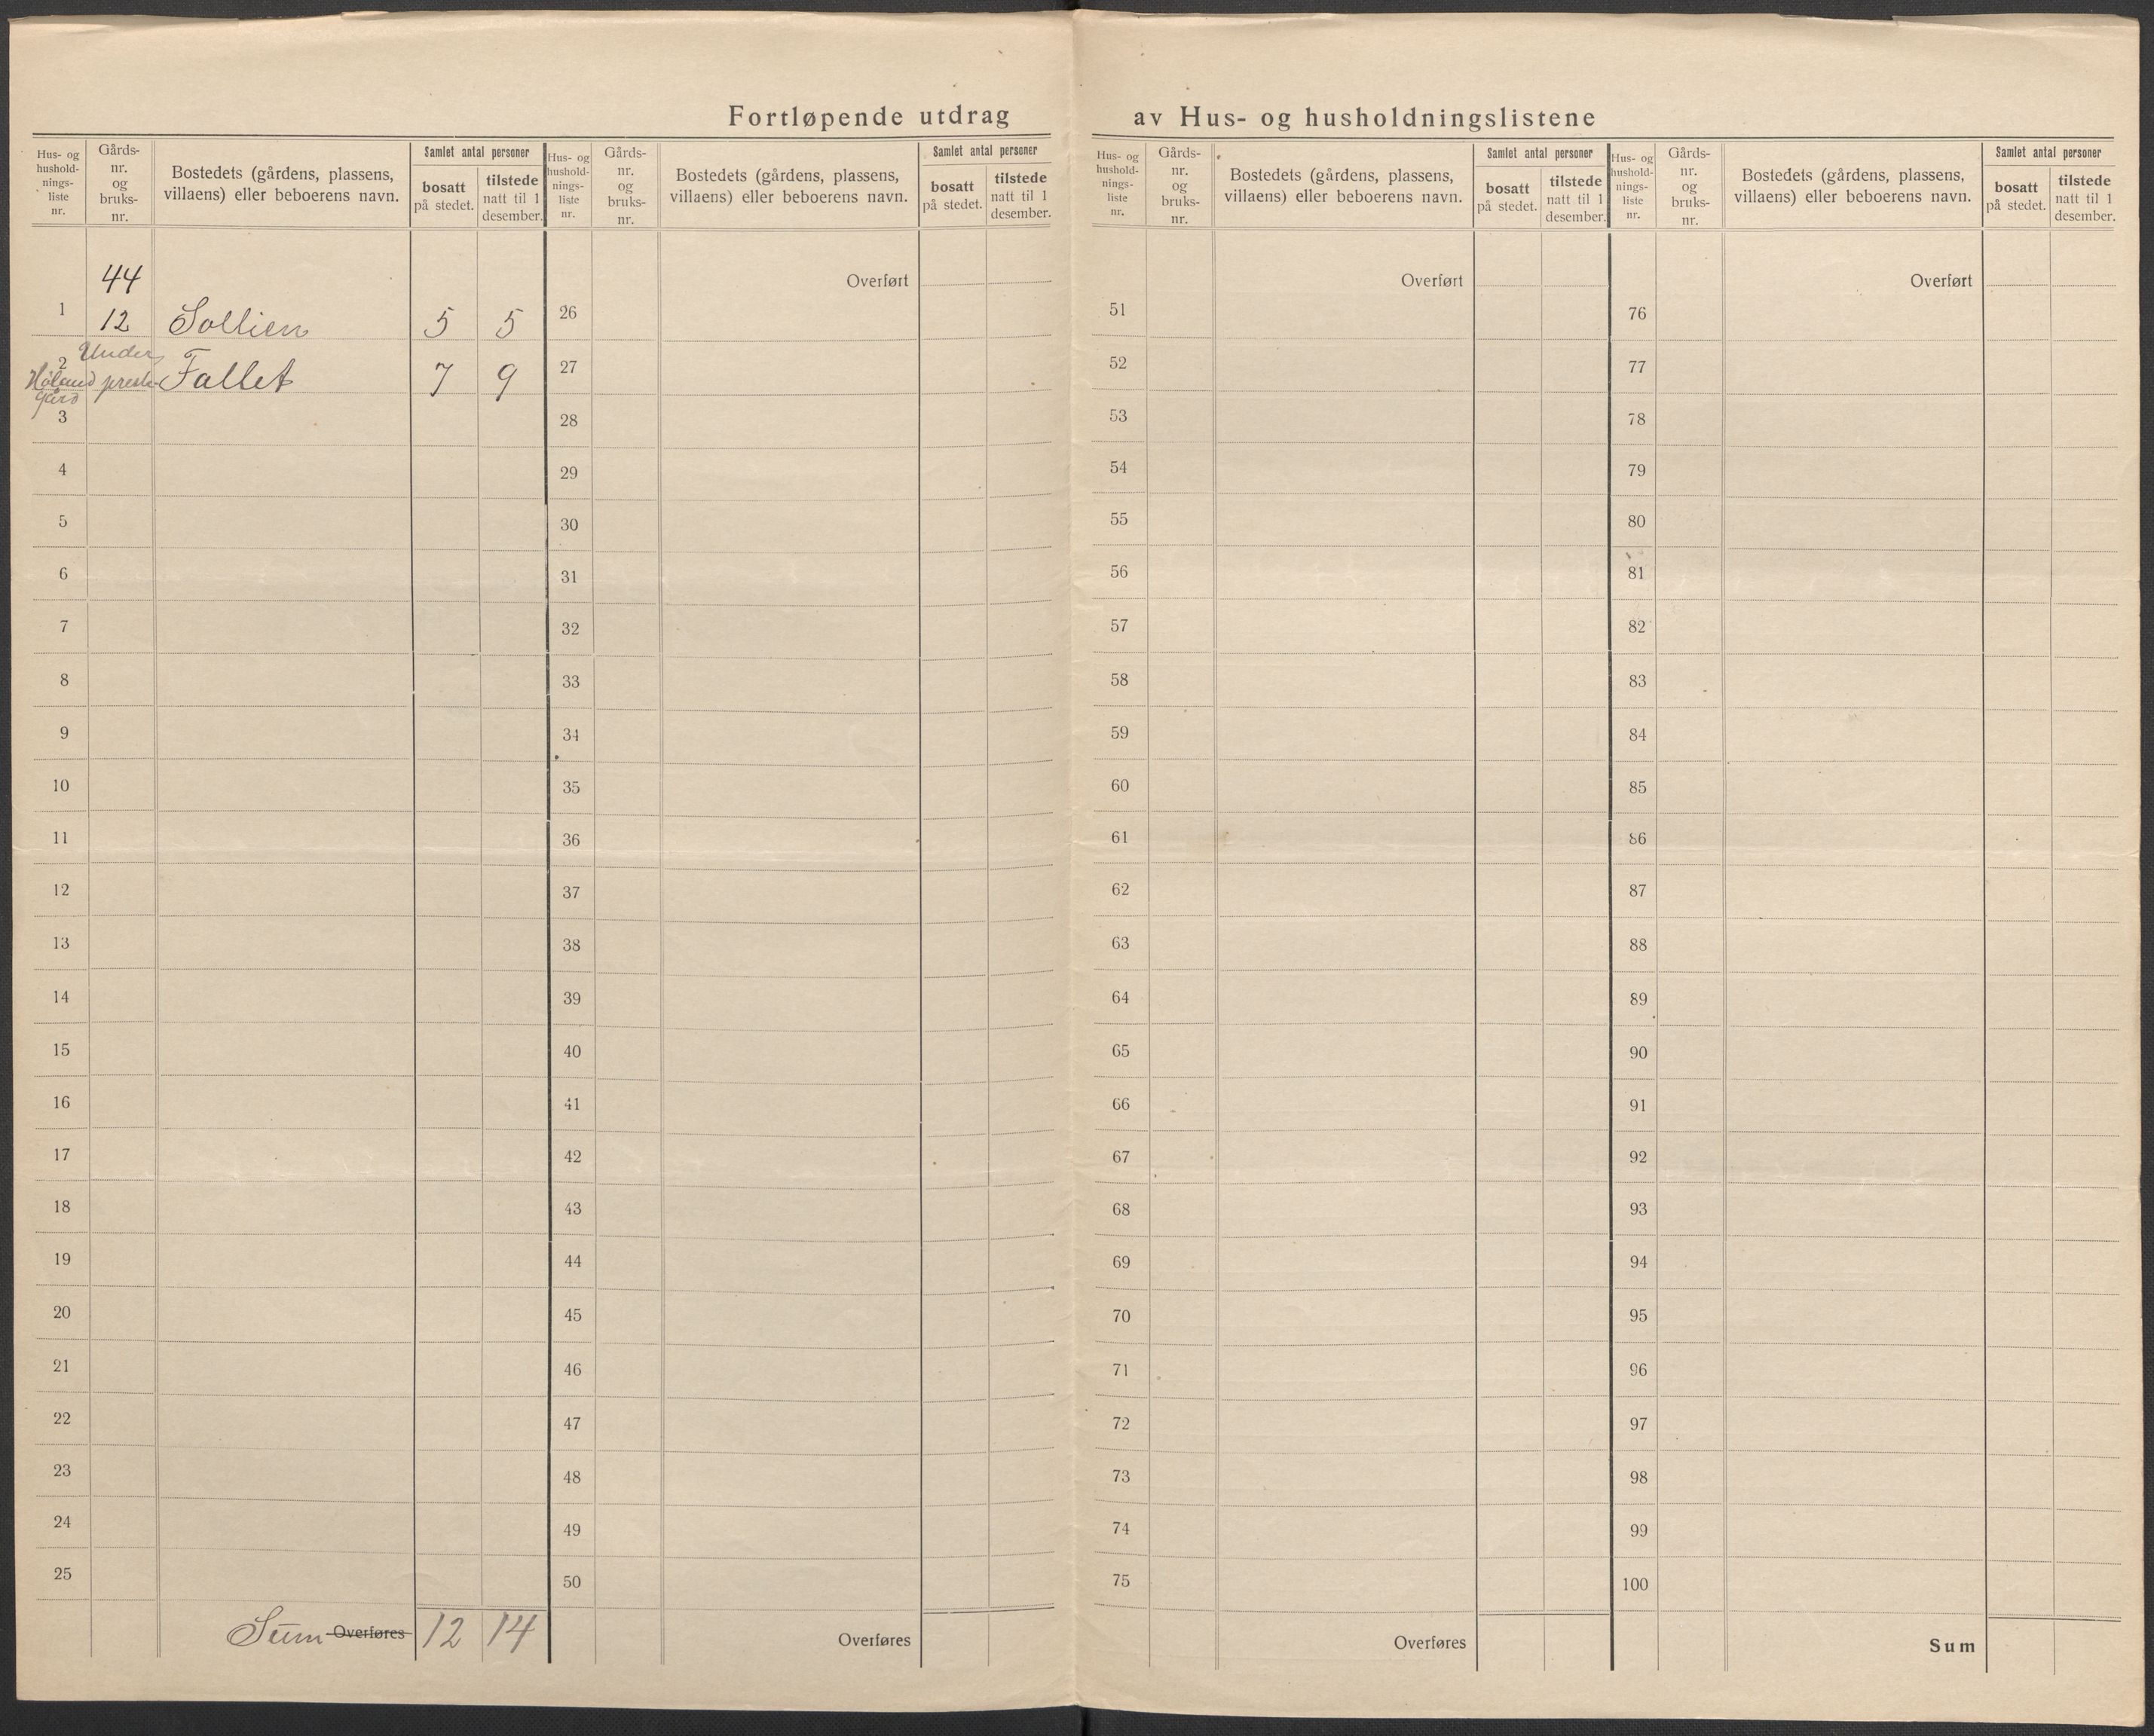 Fortløpende utdrag av Hus- og husholdningslistene
Hus- og hushold-nings-liste nr.
Gårds-nr. og bruks-nr.
Bostedets (gårdens, plassens, villaens) eller beboerens navn.
Samlet antal personer
bosatt på stedet.
tilstede natt til 1 desember.
Hus- og hushold-nings-liste nr.
Gårds-nr. og bruks-nr.
Bostedets (gårdens, plassens, villaens) eller beboerens navn.
Samlet antal personer
bosatt på stedet.
tilstede natt til 1 desember.
Hus- og hushold-nings-liste nr.
Gårds-nr. og bruks-nr.
Bostedets (gårdens, plassens, villaens) eller beboerens navn.
Samlet antal personer
bosatt på stedet.
tilstede natt til 1 desember.
Hus- og hushold-nings-liste nr.
Gårds-nr. og bruks-nr.
Bostedets (gårdens, plassens, villaens) eller beboerens navn.
Samlet antal personer
bosatt på stedet.
tilstede natt til 1 desember.
44
1 12 Sollien 5 5
2 Under Høland preste-gård Fallet 7 9
3
4
5
6
7
8
9
10
11
12
13
14
15
16
17
18
19
20
21
22
23
24
25
Sum Overføres 12 14
Overført
26
27
28
29
30
31
32
33
34
35
36
37
38
39
40
41
42
43
44
45
46
47
48
49
50
Overføres
Overført
51
52
53
54
55
56
57
58
59
60
61
62
63
64
65
66
67
68
69
70
71
72
73
74
75
Overføres
Overført
76
77
78
79
80
81
82
83
84
85
86
87
88
89
90
91
92
93
94
95
96
97
98
99
100
Sum